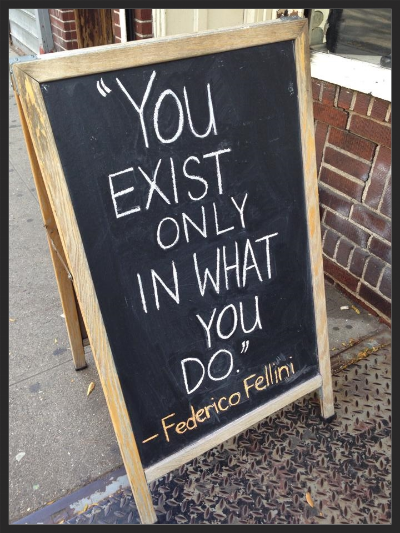 "YOU
EXIST
ONLY
IN WHAT
YOU
DO."
- Federico Fellini